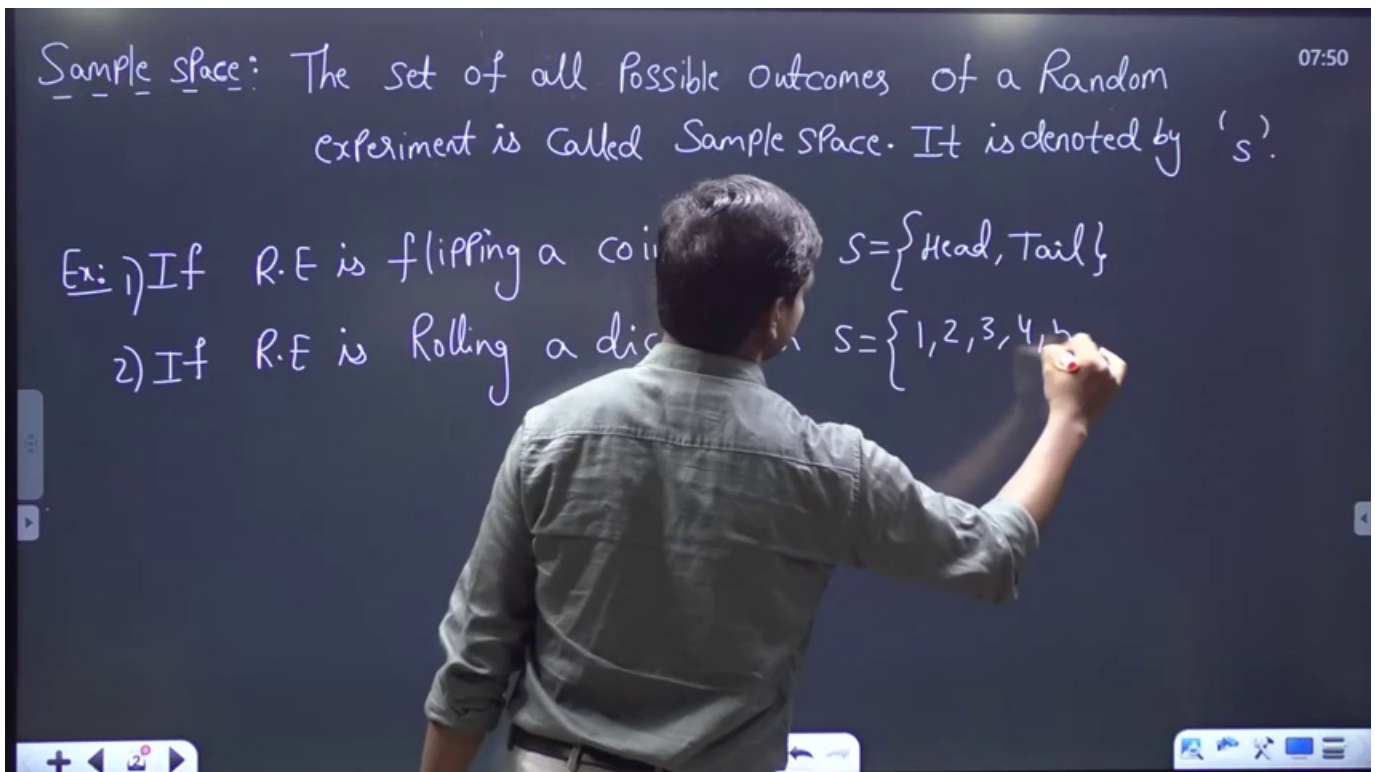 Sample space: The set of all Possible outcomes of a Random
07:50
experiment is called Sample space. It is denoted by 's'.
Ex: 1) If R.E is flipping a coi S={Head, Tail}
2) If R.E is Rolling a dic S={1,2,3,4,
2